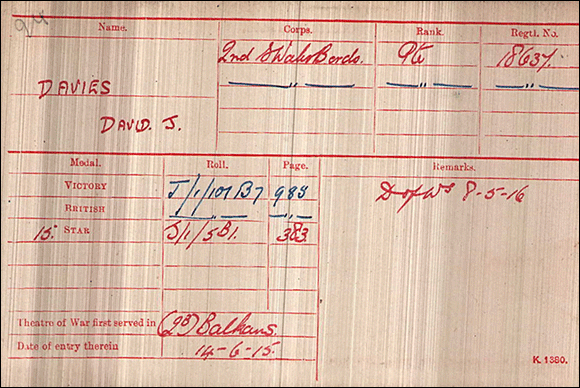 Name. Corps. Rank. Regtl. No.
2nd S Wales Bords. Pte 18637.
DAVIES — " — — " — — " —
DAVID. J.
Medal. Roll. Page. Remarks.
VICTORY J/1/101 B7 988 D of Ws 8-5-16
BRITISH — " — — " —
15 STAR J/1/5 B1. 383.
Theatre of War first served in (2B) Balkans.
Date of entry therein 14-6-15.
K 1380.